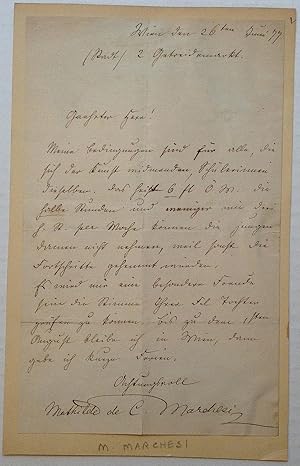 Wien den 26ten Juni 77
(Stadt) 2 Getreidemarkt.
Geehrter Herr!
Meine Bedingungen sind für alle, die
sich der Kunst widmenden Schülerinnen
dieselben. das heißt 6 fl Ö. W. die
halbe Stunde und weniger wie drei
h. St. per Woche können die jungen
Damen nicht nehmen, weil sonst die
Fortschritte gehemmt würden.
Es wird mir eine besondere Freude
sein die Stimme Ihrer Frl Tochter
prüfen zu können, bis zu dem 1sten
August bleibe ich in Wien, dann
gebe ich kurze Ferien.
Achtungsvoll
Mathilde de C. Marchesi
M. MARCHESI